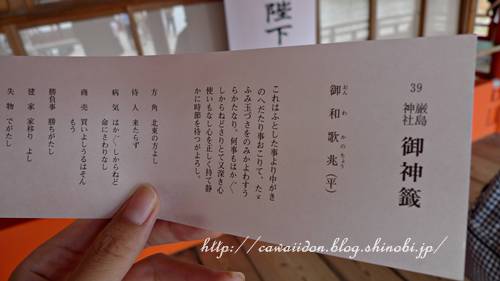 39
厳島神社
御神籤
御和歌兆(平)
おん わ かのちょう
これはふとした事より中がき
のへだたり事おこりて、たゞ
ふみ玉づさをのみかよわすう
らかたなり。何事もはか/\
しからねどさりとて又深き心
使いもなし心を正しく持て静
かに時節を待つがよろし。
方角 北東の方よし
待人 来たらず
病気 はか/\しからねど
命にさわりなし
商売 買いよしうるはそん
もう
勝負事 勝ちがたし
建家 家移り よし
失物 でがたし
陛下
http://cawaiidon.blog.shinobi.jp/